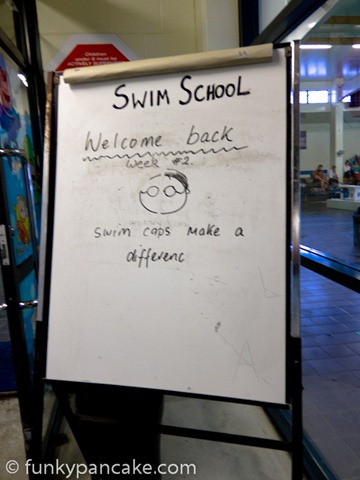 Children
under 8 must be
ACTIVELY SUPERVISED
SWIM SCHOOL
Welcome back
Week #2.
swim caps make a
differenc
© funkypancake.com